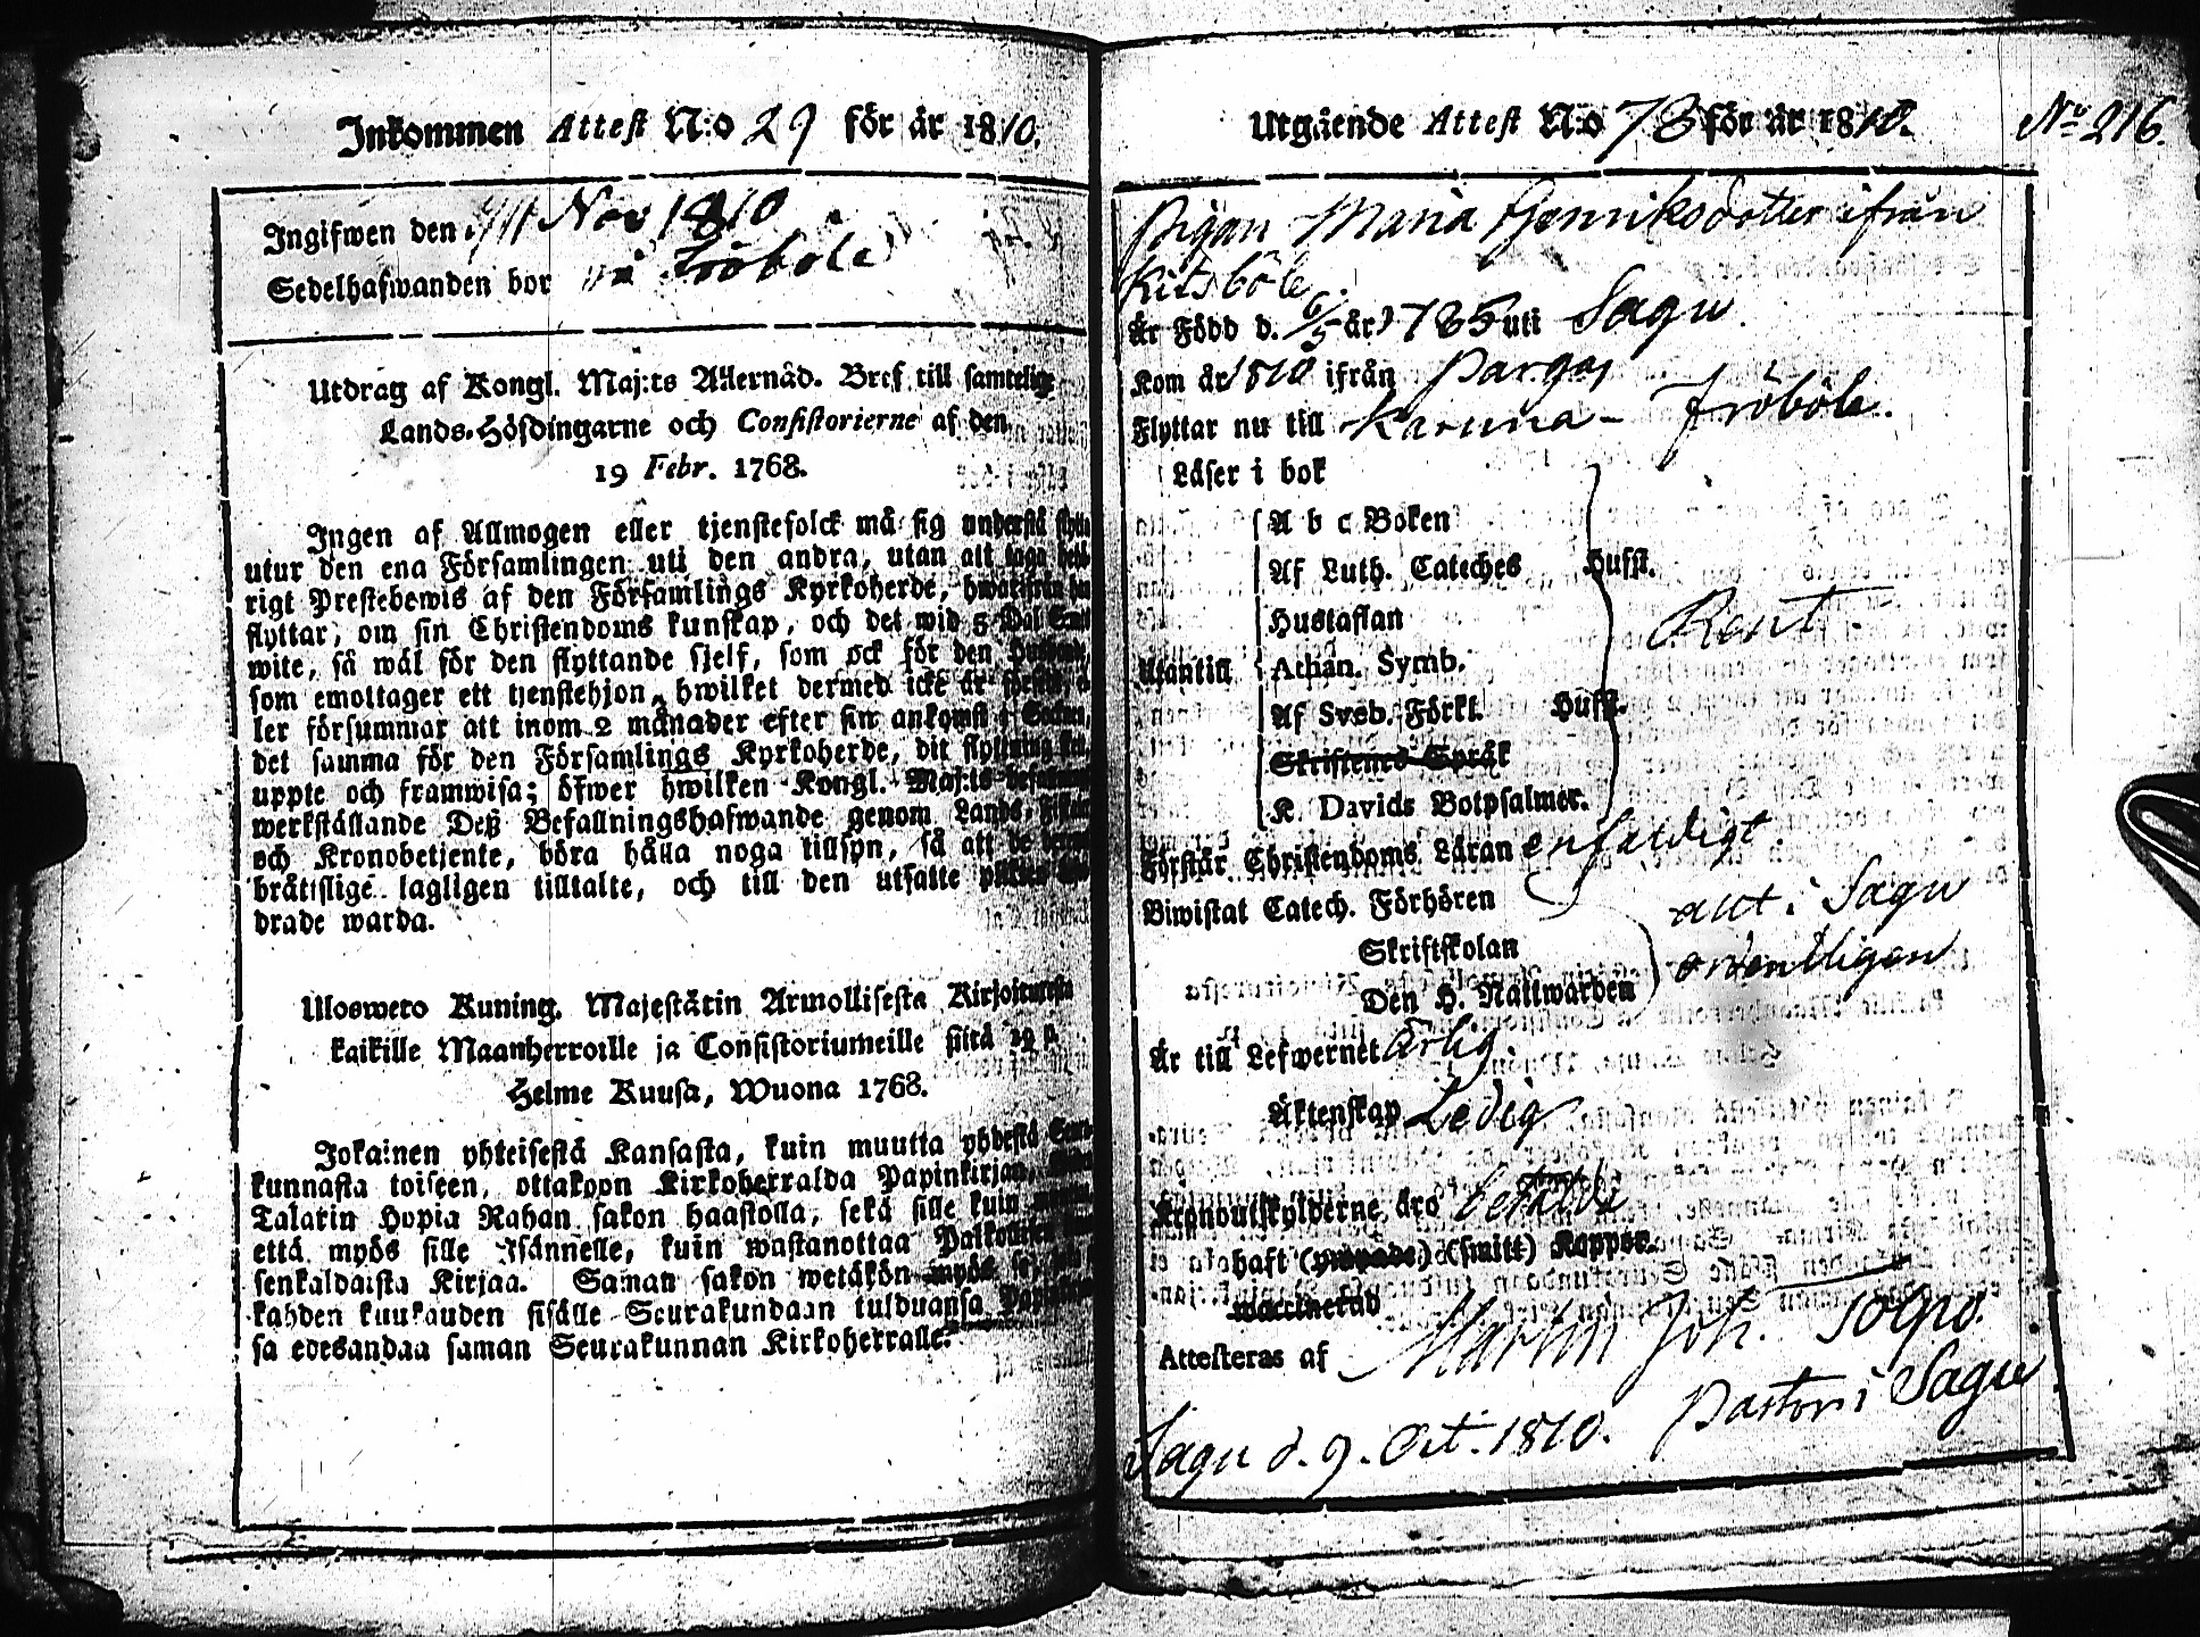 Inkommen Attest N:o 29 för år 1810.
Ingifwen den Nov 1810
Sedelhafwanden bor på Fröböle
Utdrag af Kongl. Maj:ts Allernåd. Bref till samtelige
Lands-Höfdingarne och Consistorierne af den
19 Febr. 1768.
Ingen af Allmogen eller tjenstefolck må sig understå flytta
utur den ena Församlingen uti den andra, utan att taga behö-
rigt Prestebewis af den Församlings Kyrkoherde, hwarifrån
flyttar, om sin Christendoms kunskap, och det wid 5 Dal
wite, så wäl för den flyttande sjelf, som ock för den
som emottager ett tjenstehjon, hwilket dermed icke är
ler försummar att inom 2 månader efter sin ankomst
det samma för den Församlings Kyrkoherde, dit flyttning
uppte och framwisa; öfwer hwilken Kongl. Maj:ts
werkställande Deß Befallningshafwande genom Lands-
och Kronobetjente, böra hålla noga tillsyn, så att de
bråtslige lagligen tilltalte, och till den utsatte
drade warda.
Uloswero Kuning. Majestätin Armollisesta Kirjoituxesta
kaikille Maanherroille ja Consistoriumeille siitä 19 p.
Helme Kuusa, Wuona 1768.
Jokainen yhteisestä Kansasta, kuin muutta yhdestä Seura-
kunnasta toiseen, ottakoon Kirkoherralda Papinkirjan,
Talarin Hopia Rahan sakon haastolla, sekä sille kuin
että myös sille Isännelle, kuin wastanottaa
senkaldaista Kirjaa. Saman sakon wetäkön myös
kahden kuukauden sisälle Seurakundaan tulduansa
sa edesandaa saman Seurakunnan Kirkoherralle.
Utgående Attest N:o 78 för år 1810. No 216.
Pigan Maria Henriksdotter ifrån
Kitsböle
Är Född d. 6/5 år 1785 uti Sagu.
Kom år 1810 ifrån Pargas
Flyttar nu till Karuna - Fröböle.
Läser i bok
A b c Boken
Af Luth. Cateches Husst.
Hustaflan
Rent
Utantill Athan. Symb.
Af Sveb. Förkl. Husst.
Skriftenes Språk
K. Davids Botpsalmer.
Förstår Christendoms Läran enfaldigt.
Biwistat Catech. Förhören
ant. i Sagu
Skriftskolan
ordentligen
Den H. Nattwarden
Är till Lefwernet Ärlig.
Äktenskap Ledig
Kronoutskylderne äro betalde
haft (ympade) (smitt) Koppor.
waccinerad
Attesteras af Martin Joh. Tolpo.
Pastor i Sagu
Sagu d. 9. Oct. 1810.